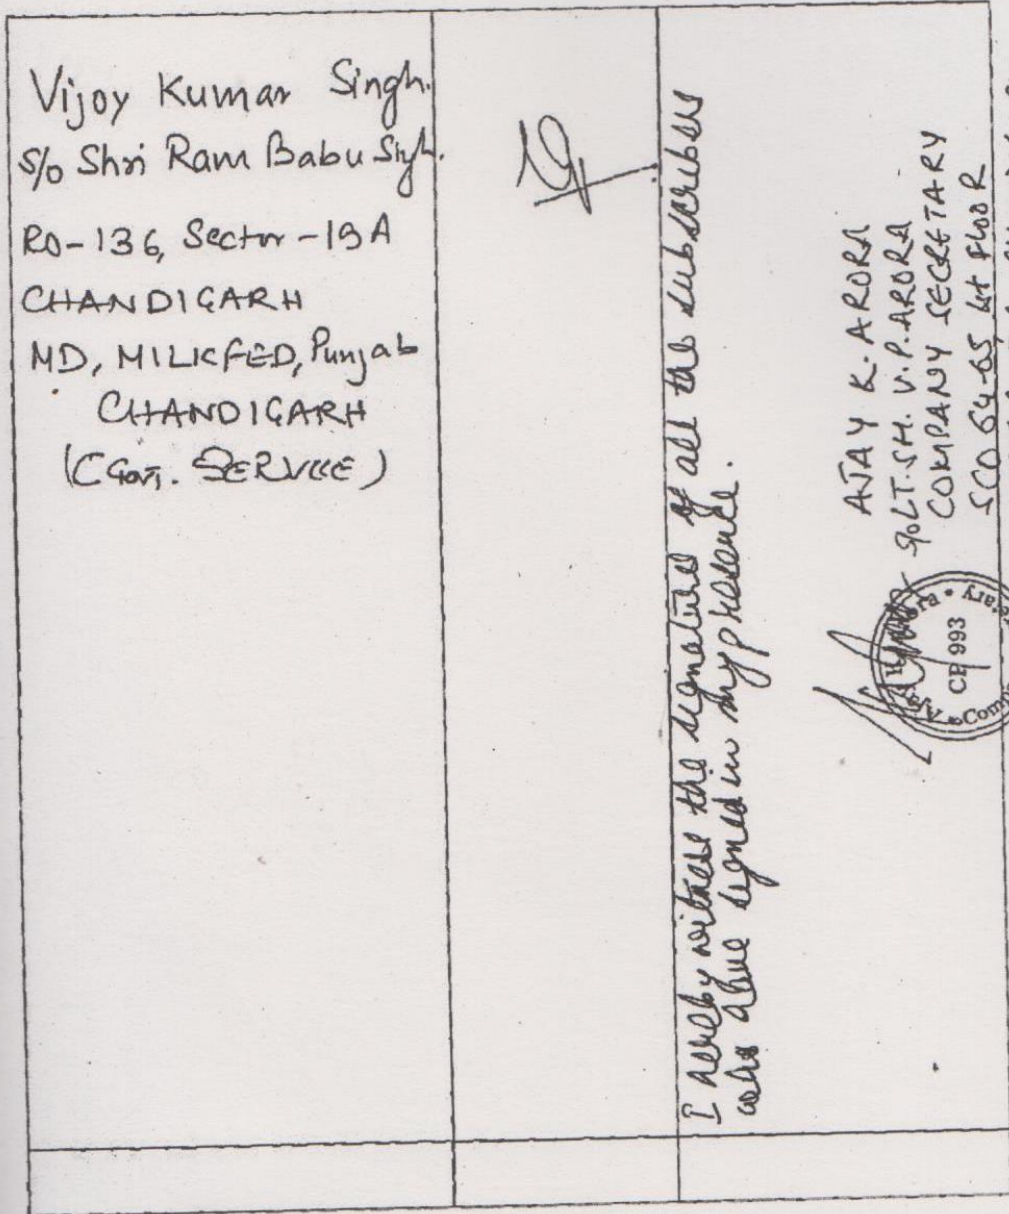 Vijoy Kumar Singh.
S/o Shri Ram Babu Singh.
RO-136, Sector-19A
CHANDIGARH
MD, MILKFED, Punjab
CHANDIGARH
(CGovt. SERVICE)
I hereby witness the signature of all the subscribers
who have signed in my presence.
AJAY K. ARORA
S/o LT. SH. V. P. ARORA
COMPANY SECRETARY
SCO 64-65, 1st FLOOR
CP 993